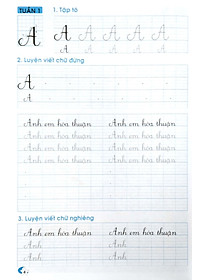 TUẦN 1
1. Tập tô
A A A A A A
A A A A A
2. Luyện viết chữ đứng
A
A
Anh em hòa thuận Anh em hòa thuận
Anh em hòa thuận Anh em hòa thuận
Anh em hòa thuận Anh em hòa thuận
Anh em hòa thuận Anh em hòa thuận
3. Luyện viết chữ nghiêng
Anh em hòa thuận Anh em hòa thuận
Anh Anh
Anh Anh